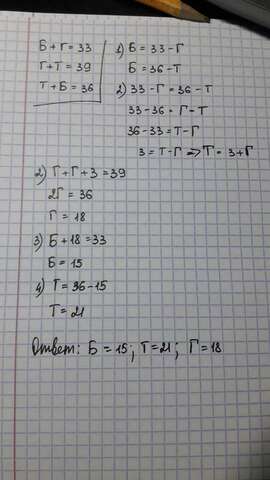 Б + Г = 33
Г + Т = 39
Т + Б = 36
1) Б = 33 - Г
Б = 36 - Т
2) 33 - Г = 36 - Т
33 - 36 = Г - Т
36 - 33 = Т - Г
3 = Т - Г ⇒ Т = 3 + Г
2) Г + Г + 3 = 39
2Г = 36
Г = 18
3) Б + 18 = 33
Б = 15
4) Т = 36 - 15
Т = 21
Ответ: Б = 15; Т = 21; Г = 18